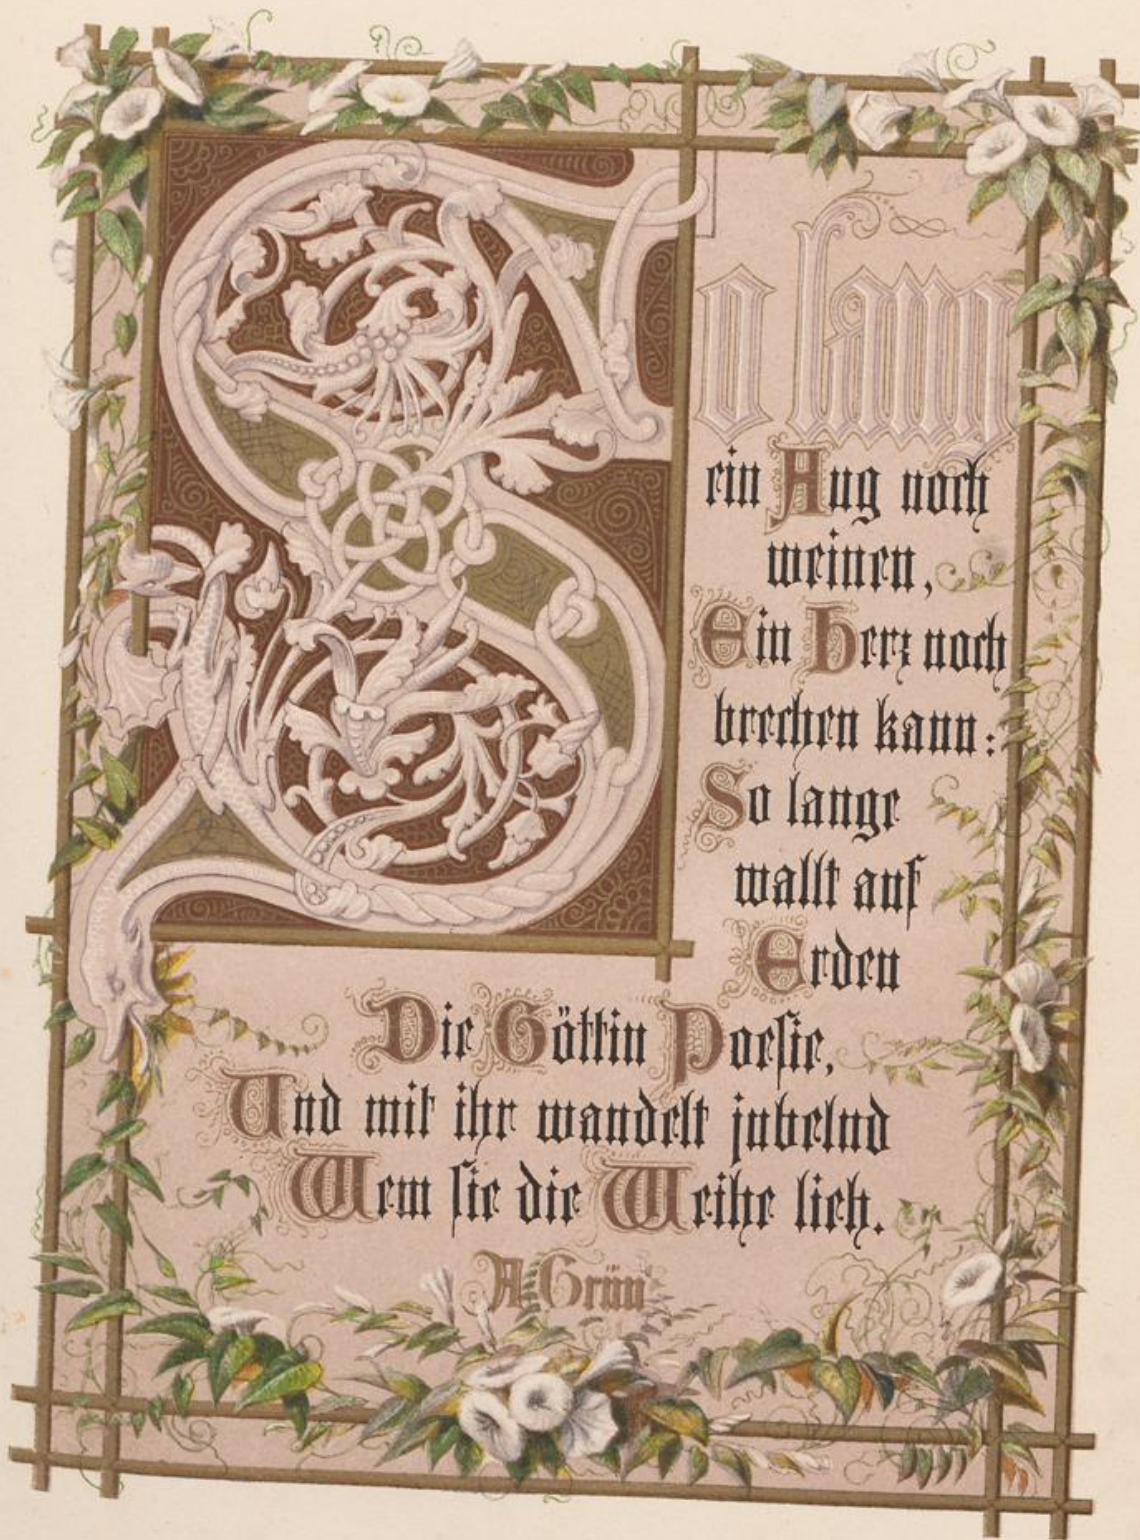 So lang
ein Aug noch
weinen,
Ein Herz noch
brechen kann:
So lange
wallt auf
Erden
Die Göttin Poesie,
Und mit ihr wandelt jubelnd
Wem sie die Weihe lieh.
A Grün